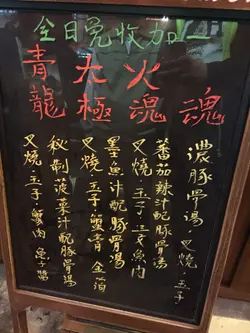 全日免收加一
青龍 大極 火魂 魂
濃豚骨湯，叉燒，玉子
蕃茄辣汁配豚骨湯
叉燒，玉子，魚肉
墨魚汁配豚骨湯
叉燒，玉子，蟹膏，金箔
秘制菠菜汁配豚骨湯
叉燒，玉子，蟹肉，魚醬